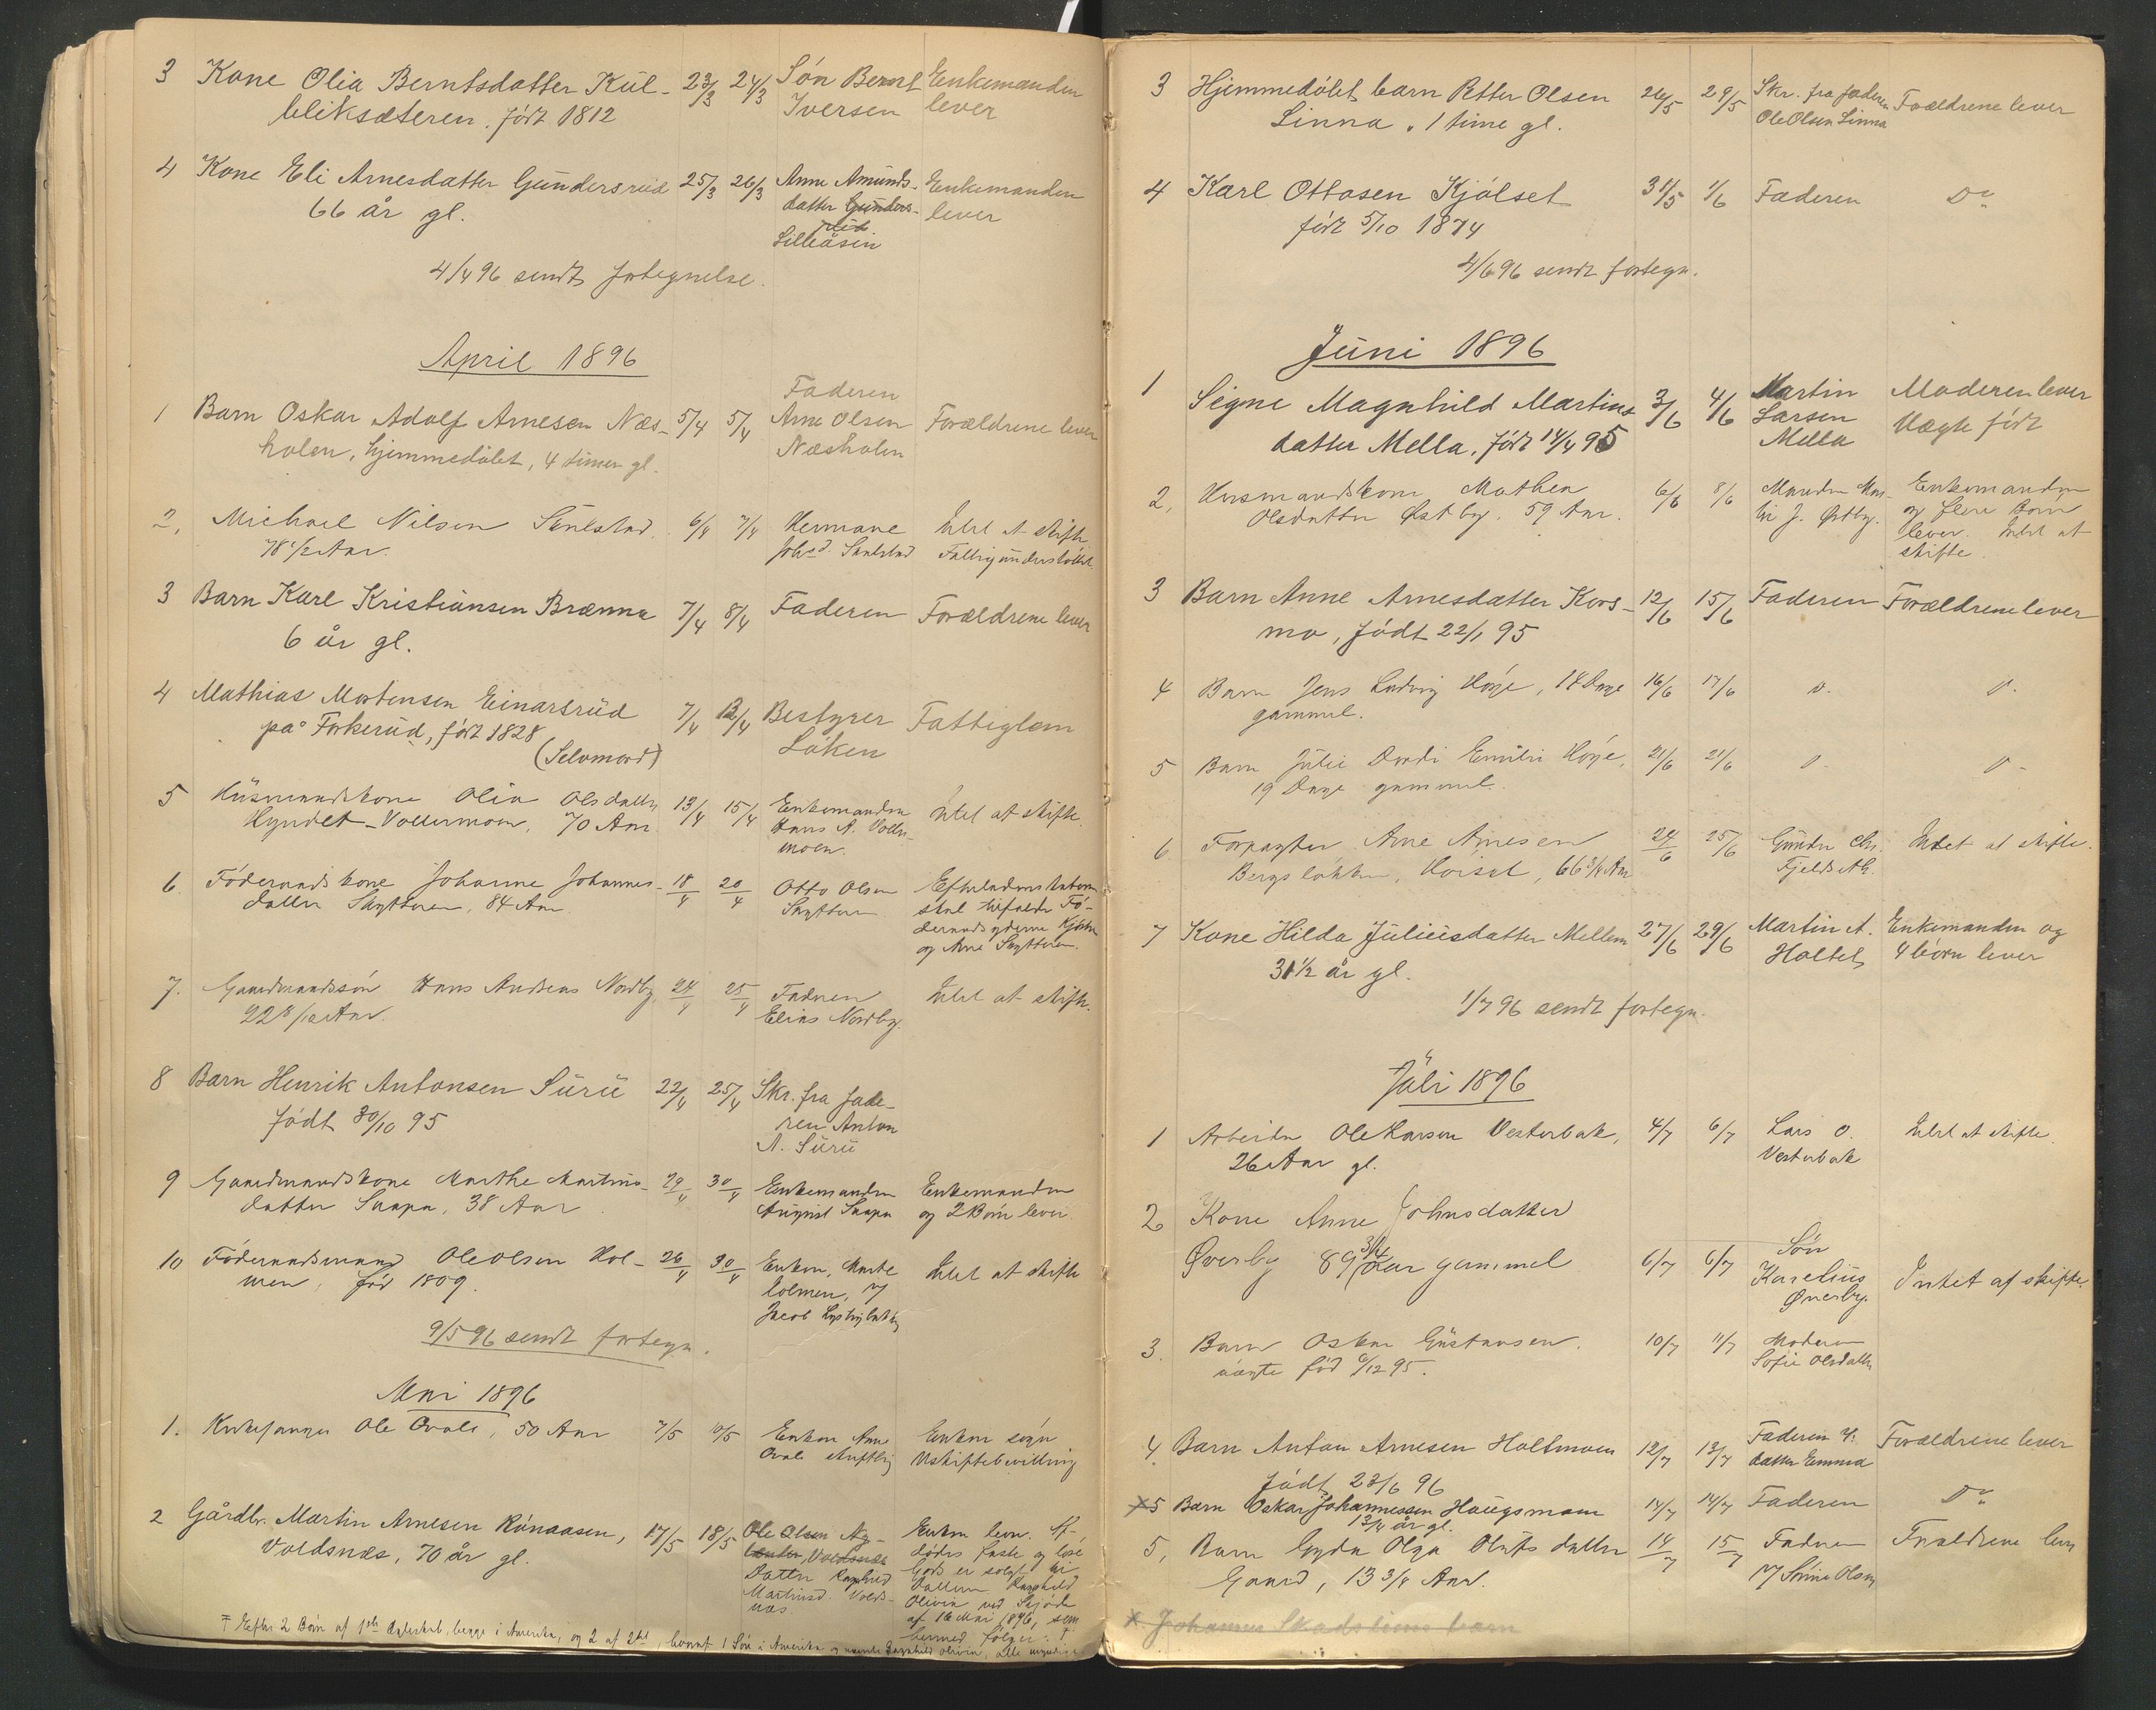 3 Kone Olia Berntsdatter Kül- 23/3 24/3 Søn Bernt Enkemanden
bliksæteren, født 1812 Iversen lever
4 Kone Eli Arnesdatter Gundersrud 25/3 26/3 Anne Amunds- Enkemanden
66 år gl. datter Gunders- lever
rud
Lilleåsen
4/4 96 sendt fortegnelse.
April 1896
Faderen
1 Barn Oskar Adolf Arnesen Næs- 5/4 5/4 Arne Olsen Forældrene lever
holen, hjemmedøbt, 4 timer gl. Næsholen
2, Michael Nilsen 6/4 7/4 Hermane Intet at skifte
78 1/2 Aar.
3 Barn Karl Kristiansen Brænna 7/4 8/4 Faderen Forældrene lever
6 år gl.
4 Mathias Mortensen Einarsrüd 7/4 12/4 Bestyrer Fattiglem
på Forkerüd, født 1828 Løken
(Selvmord)
5 Husmandskone Olia Olsdatter 13/4 15/4 Enkemanden Intet at skifte.
Vollermoen, 70 Aar Hans A. Voller-
moen.
6. Føderaadskone Johanne Johannes- 18/4 20/4 Otto Olsen
datter Skytteren, 84 Aar Skytteren
og Arne Skytteren.
7. Gaardmandssøn Hans Andreas Nordby 24/4 25/4 Faderen Intet at skifte.
22 8/12 Aar. Elias Nordby.
8 Barn Henrik Antonsen Sürü 22/4 25/4 Skr. fra fade-
født 30/10 95 ren Anton
A. Sürü
9 Gaardmandskone Marthe Martins- 29/4 30/4 Enkemanden Enkemanden
datter Saapa, 38 Aar August Saapa og 2 Børn lever.
10 Føderaadsmand Ole Olsen Hol- 26/4 30/4 Enken, Marte Intet at skifte
men, fød 1809. Holmen, v/
Jacob
9/5 96 sendt fortegn.
Mai 1896
1. Ole Ovale, 50 Aar 7/5 9/5 Enken Anne Enken søger
Ovale skriftlig Uskiftebevilling
2 Gårdbr. Martin Arnesen Rønaasen, 17/5 18/5 Ole Olsen Enken lever. Af-
Voldsnæs, 70 år gl. Voldsnæs dødes faste og løse
Datter Ragnhild Gods er solgt til
Martinsd. Volds- Datteren Ragnhild
næs Olivia ved Skjøde
af 16 Mai 1896, som
hermed følger. Ŧ
Ŧ Efter 2 Børn af 1ste Ægteskab, begge i Amerika, og 2 af 2det, hvoraf 1 Søn i Amerika og Ragnhild Olivia, alle myndige
3 Hjemmedøbt barn Petter Olsen 26/5 29/5 Skr. fra faderen Forældrene lever
Linna, 1 time gl. Ole Olsen Linna
4 Karl Ottosen Kjølset 31/5 1/6 Faderen Do
født 5/10 1874
4/6 96 sendt fortegn.
Juni 1896
1 Signe Magnhild Martins 3/6 4/6 Martin Moderen lever
datter Mella, født 14/4 95 Larsen Uægte født
Mella
2, Husmandskone Mathea 6/6 8/6 Manden Mar- Enkemanden
Olsdatter Østby, 59 Aar. tin J. Østby. og flere Børn
lever. Intet at
skifte.
3 Barn Anne Arnesdatter Kors- 12/6 15/6 Faderen Forældrene lever
mo, født 22/1 95
4 Barn Jens Ludvig Høye, 14 Dage 16/6 17/6 Do. Do.
gammel.
5 Barn Julie Emilie Høye, 21/6 21/6 Do- Do-
19 Dage gammel.
6 Forpagter Arne Arnesen 24/6 25/6 Gunder Chr. Intet at skifte.
Bergsløkken, Hoiset, 66 3/4 Aar
7 Kone Hilda Juliusdatter Mellem 27/6 29/6 Martin A. Enkemanden og
31 1/2 år gl. Holtet 4 børn lever
1/7 96 sendt fortegn.
Juli 1896
1 Arbeider Ole Larsen Vesterbak, 4/7 6/7 Lars O. Intet at skifte.
26 Aar gl. Vesterbak
2 Kone Anne Johnsdatter
Øverby 89 3/4 aar gammel 6/7 6/7 Søn
Karelius Intet af skifte.
Øverby.
3. Barn Oskar Gustavsen. 10/7 11/7 Moderen
uægte fød 6/12 95. Sofie Olsdatter
4. Barn Anton Arnesen Holtmoen 12/7 13/7 Faderen v. Forældrene lever
født 23/6 96 datter Emma
×5 Barn Oskar Johannessen Haugsmoen 14/7 14/7 Faderen Do
1 3/4 år gl.
5, Barn Gyda Olga Olufsdatter 14/7 15/7 Faderen Forældrene lever
Gaard, 13 3/4 Aar. v/ Simen Olsen
× Johannes Skadstuens barn